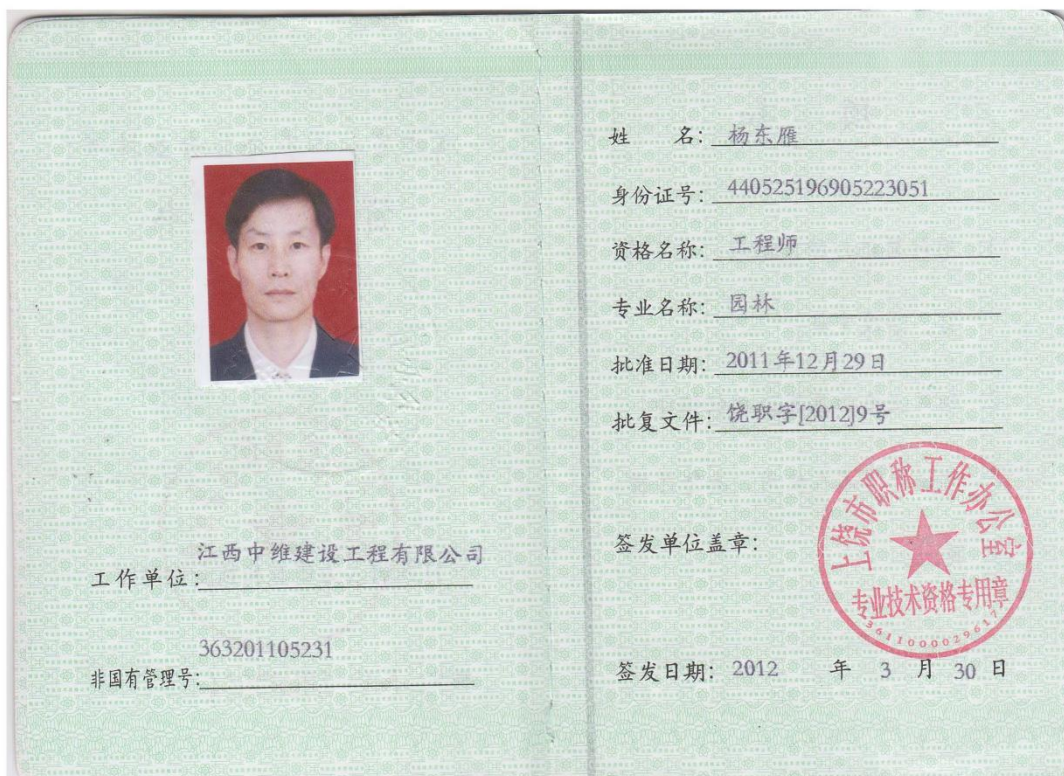 工作单位:江西中维建设工程有限公司
非国有管理号:363201105231
姓 名:杨东雁
身份证号:440525196905223051
资格名称:工程师
专业名称:园林
批准日期:2011年12月29日
批复文件:饶职字[2012]9号
签发单位盖章:
上饶市职称工作办公室
专业技术资格专用章
3611000029617
签发日期:2012 年 3 月 30 日